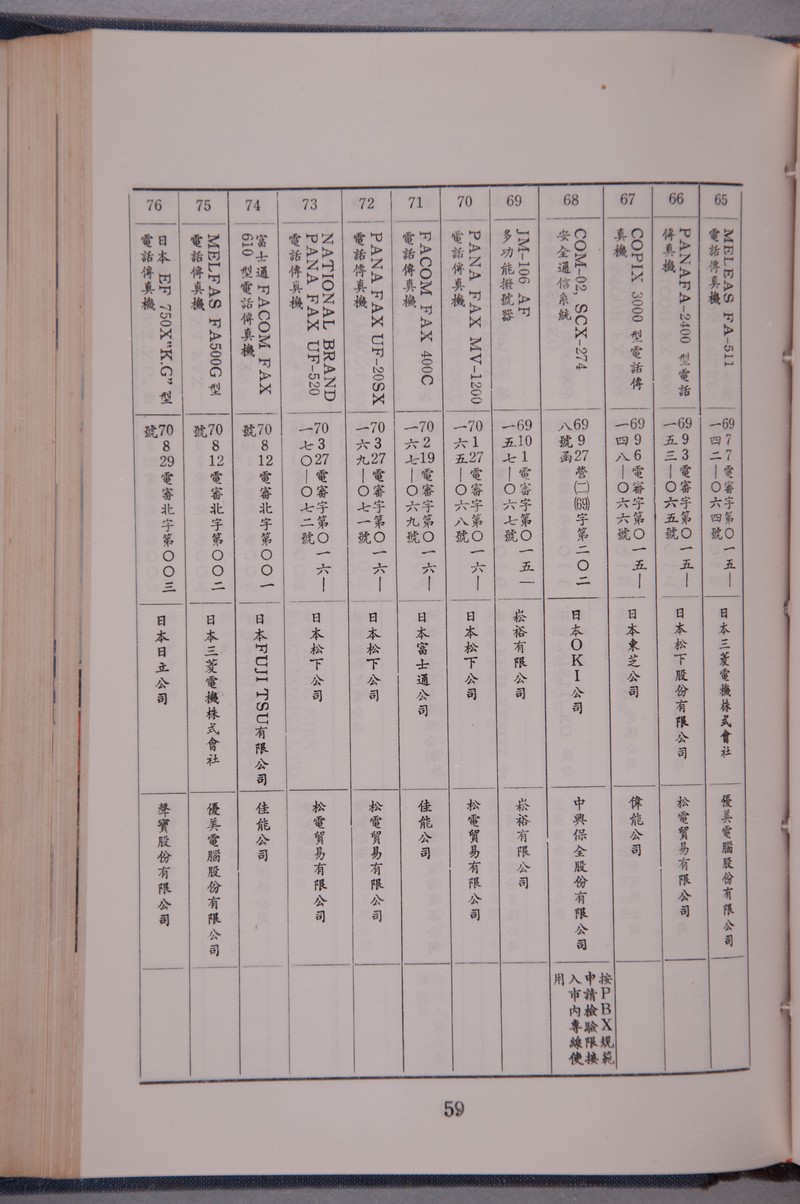 65
MELFAS FA-511
電話傳真機
69 7 7 電審字第○一五—
一四二—○六四號
日本三菱電機株式會社
優美電腦股份有限公司
66
PANAFA-2400 型電話
傳真機
69 9 3 電審字第○一五—
一五三—○六五號
日本松下股份有限公司
松電貿易有限公司
67
COPIX 3000 型電話傳
真機
69 9 6 電審字第○一五—
一四八—○六六號
日本東芝公司
偉能公司
68
COM-02, SCX-274
安全通信系統
69 9 27 營(二)(69)字第二○二
八號函
日本OKI公司
中興保全股份有限公司
按PBX規範
申請檢驗限接
入市內專線使
用
69
JM-106 AF
多功能撥號器
69 10 1 電審字第○一五一
一五七—○六七號
崧裕有限公司
崧裕有限公司
70
PANA FAX MV-1200
電話傳真機
70 1 27 電審字第○一六—
一六五—○六八號
日本松下公司
松電貿易有限公司
71
FACOM FAX 400C
電話傳真機
70 2 19 電審字第○一六—
一六七—○六九號
日本富士通公司
佳能公司
72
PANA FAX UF-20SX
電話傳真機
70 3 27 電審字第○一六—
一六九—○七一號
日本松下公司
松電貿易有限公司
73
NATIONAL BRAND
PANA FAX UF-520
電話傳真機
70 3 27 電審字第○一六—
一七○—○七二號
日本松下公司
松電貿易有限公司
74
富士通 FACOM FAX
610 型電話傳真機
70 8 12 電審北字第○○一
號
日本FUJI TSU有限公司
佳能公司
75
MELFAS FA500G 型
電話傳真機
70 8 12 電審北字第○○二
號
日本三菱電機株式會社
優美電腦股份有限公司
76
日本 EF 750X"K.G" 型
電話傳真機
70 8 29 電審北字第○○三
號
日本日立公司
聲寶股份有限公司
59